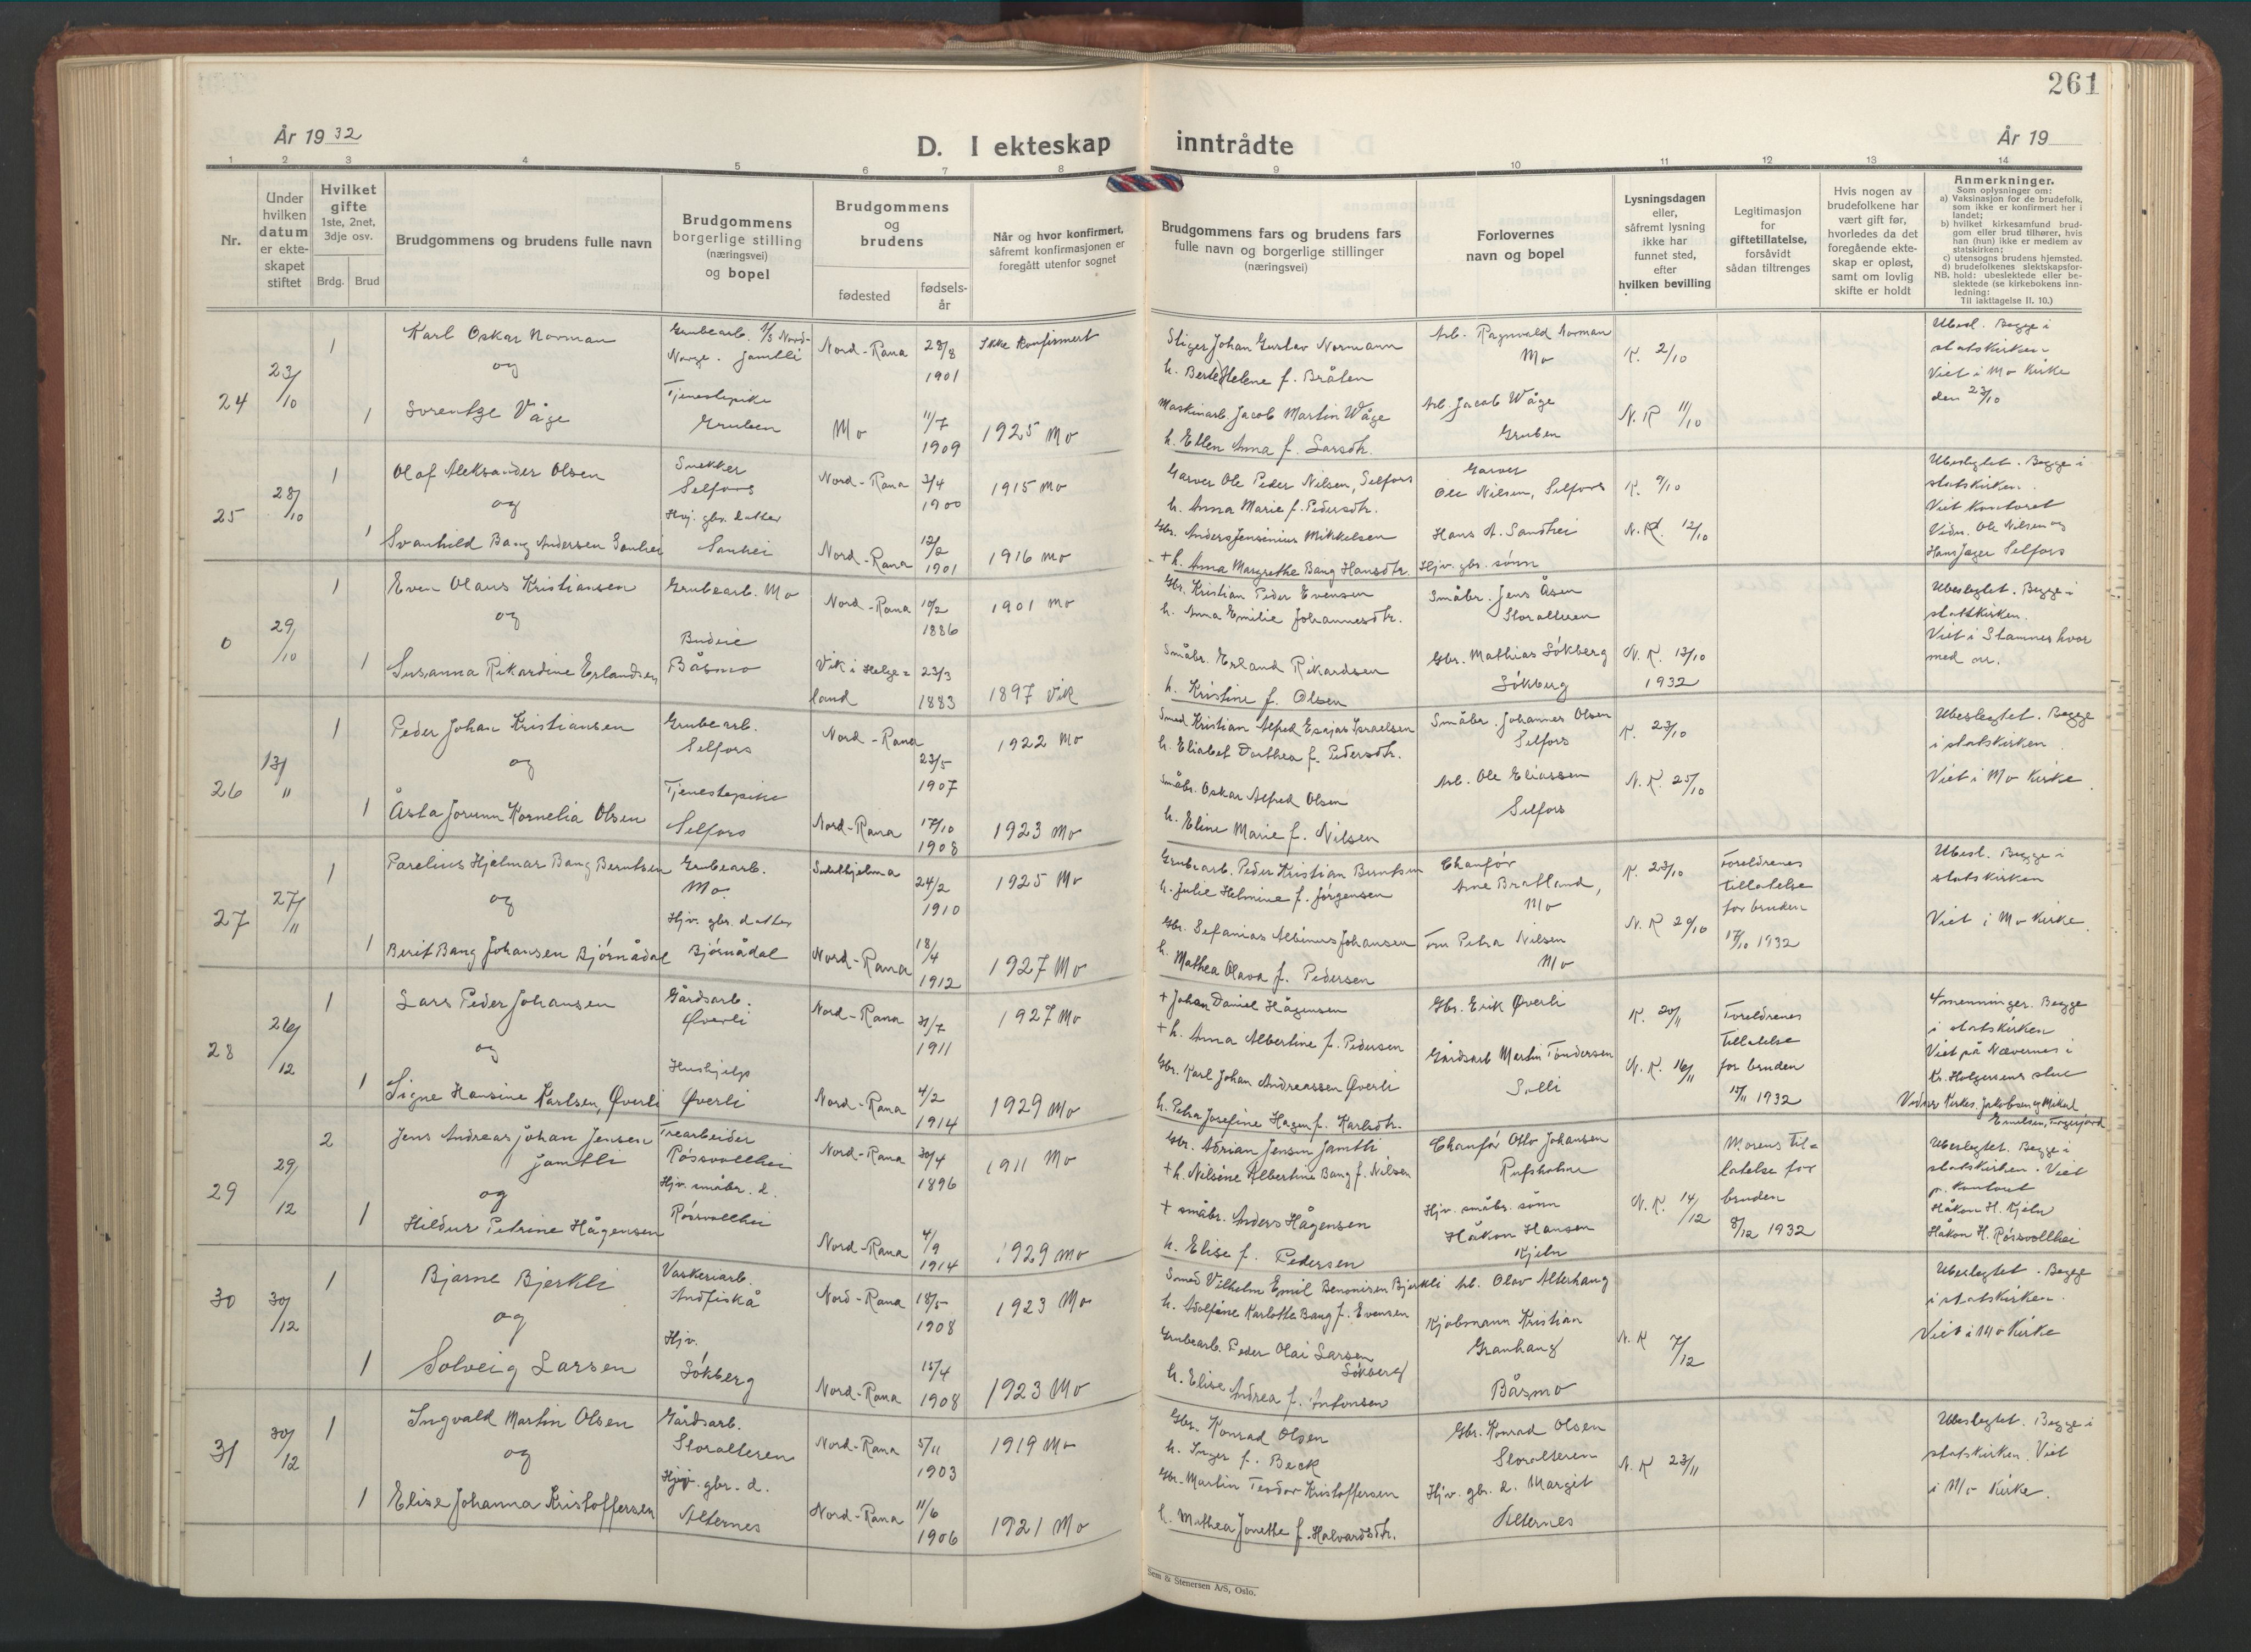 261
År 1932
D. I ekteskap inntrådte
År 19
1 2 3 4 5 6 7 8 9 10 11 12 13 14
Nr.
Under
hvilken
datum
er ekte-
skapet
stiftet
Hvilket
gifte
1ste, 2net,
3dje osv.
Brdg. Brud
Brudgommens og brudens fulle navn
Brudgommens
borgerlige stilling
(næringsvei)
og bopel
Brudgommens
og
brudens
fødested
fødsels-
år
Når og hvor konfirmert,
såfremt konfirmasjonen er
foregått utenfor sognet
Brudgommens fars og brudens fars
fulle navn og borgerlige stillinger
(næringsvei)
Forlovernes
navn og bopel
Lysningsdagen
eller,
såfremt lysning
ikke har
funnet sted,
efter
hvilken bevilling
Legitimasjon
for
giftetillatelse,
forsåvidt
sådan tiltrenges
Hvis nogen av
brudefolkene har
vært gift før,
hvorledes da det
foregående ekte-
skap er opløst,
samt om lovlig
skifte er holdt
Anmerkninger.
Som oplysninger om:
a) Vaksinasjon for de brudefolk,
som ikke er konfirmert her i
landet;
b) hvilket kirkesamfund brud-
gom eller brud tilhører, hvis
han (hun) ikke er medlem av
statskirken;
c) utensogns brudens hjemsted.
d) brudefolkenes slektskapsfor-
NB. hold: ubeslektede eller be-
slektede (se kirkebokens inn-
ledning:
Til iakttagelse II. 10.)
24
23/10
1
Karl Oskar Norman
og
1
Sorentze Våge
Grubearb. 1/S Nord-
Norge. Jamtli
Tjenestepike
Gruben
Nord-Rana
28/8
1901
Ikke konfirmert
Mo
11/7
1909
1925 Mo
Stiger Johan Gustav Normann
h. Berte Helene f. Bråten
Maskinarb. Jacob Martin Wåge
h. Ellen Anna f. Larsdtr.
Arb. Ragnvald Norman
Mo
Arb. Jacob Wåge
Gruben
K. 2/10
N. K 11/10
Ubesl. Begge i
statskirken
Viet i Mo Kirke
den 23/10
25
28/10
1
Olaf Aleksander Olsen
og
1
Svanhild Bang Andersen Sanhei
Snekker
Selfors
Hvj. gbr. datter
Sanhei
Nord-Rana
3/4
1900
1915 Mo
Nord-Rana
12/2
1901
1916 Mo
Garver Ole Peder Nilsen, Selfors
h. Anna Marie f. Pedersdtr.
Gbr. Anders Jensenius Mikkelsen
+ h. Anna Margrethe Bang Hansdtr.
Garver
Ole Nilsen, Selfors
Hans A. Sandhei
Hjv. gbr. sønn
K. 9/10
N. K. 12/10
Ubeslegtet. Begge i
statskirken.
Viet Kontoret
Vidn. Ole Nilsen og
Hans Jæger Selfors
0
29/10
1
Even Olaus Kristiansen
og
1
Susanna Rikardine Erlandsen
Grubearb. Mo
Budeie
Båsmo
Nord-Rana
10/2
1886
1901 Mo
Vik i Helge=
land
23/3
1883
1897 Vik
Gbr. Kristian Peder Evensen
h. Anna Emilie Johannesdtr.
Småbr. Erland Rikardsen
h. Kristine f. Olsen
Småbr. Jens Åsen
Storalteren
Gbr. Mathias Sökberg
Sökberg
N. K. 13/10
1932
Ubeslegtet. Begge i
statskirken.
Viet i Stamnes hvor
med on.
26
13/11
1
Peder Johan Kristiansen
og
1
Åsta Jorunn Kornelia Olsen
Grubearb.
Selfors
Tjenestepike
Selfors
Nord-Rana
23/5
1907
1922 Mo
Nord-Rana
17/10
1908
1923 Mo
Smed Kristian Alfred Esajas Israelsen
h. Eliabet Dorthea f. Pedersdtr.
Småbr. Oskar Alfred Olsen
h. Eline Marie f. Nilsen
Småbr. Johannes Olsen
Selfors
Arb. Ole Eliassen
Selfors
K. 23/10
N. K. 25/10
Ubeslegtet. Begge
i statskirken.
Viet i Mo Kirke.
27
27/11
1
Parelius Hjelmar Bang Berntsen
og
1
Berit Bang Johansen Björnådal
Grubearb.
Mo.
Hjv. gbr. datter
Björnådal
Sulithjelma
24/2
1910
1925 Mo
Nord-Rana
18/4
1912
1927 Mo
Grubearb. Peder Kristian Berntsen
h. Julie Helmine f. Jörgensen
Gbr. Sefanias Albinus Johansen
h. Mathea Olava f. Pedersen
Chauför
Arne Bratland,
Mo
Fru Petra Nilsen
Mo
K. 23/10
N. K 20/10
Foreldrenes
tillatelse
for bruden
17/10 1932
Ubesl. Begge i
statskirken
Viet i Mo Kirke.
28
26/12
1
Lars Peder Johansen
og
1
Signe Hansine Karlsen, Øverli
Gårdsarb.
Øverli
Hushjelp
Øverli
Nord-Rana
31/7
1911
1927 Mo
Nord-Rana
4/2
1914
1929 Mo
+ Johan Daniel Hågensen
+ h. Anna Albertine f. Pedersen
Gbr. Karl Johan Andreassen Øverli
h. Petra Josefine Hagen f. Karlsdtr.
Gbr. Erik Øverli
Gårdsarb Martin Töndersen
Selli
K. 20/11
N. K. 16/11
Foreldrenes
tillatelse
for bruden
15/11 1932
4menninger. Begge
i statskirken
Viet på Nævernes i
Kr. Holgersens stue
Vidner Kirkes. Jakobsen og Mikal
Emilsen,
29
29/12
2
Jens Andreas Johan Jensen
Jamtli
og
1
Hildur Petrine Hågensen
Trearbeider
Rössvollhei
Hjv. småbr. d.
Rössvollhei
Nord-Rana
30/4
1896
1911 Mo
Nord-Rana
4/9
1914
1929 Mo
Gbr. Adrian Jensen Jamtli
+ h. Nilsine Albertine Bang f. Nilsen
+ småbr. Anders Hågensen
h. Elise f. Pedersen
Chauför Otto Johansen
Rufsholm
Hjv. småbr. sönn
Håkon Hansen
Kjeln
N. K. 14/12
Morens til=
latelse for
bruden
8/12 1932
Ubeslegtet. Begge i
statskirken. Viet
p. Kontoret
Håkon H. Kjeln
Håkon H. Rössvollhei
30
30/12
1
Bjarne Bjerkli
og
1
Solveig Larsen
Vaskeriarb.
Andfiskå
Hjv.
Sökberg
Nord-Rana
18/5
1908
1923 Mo
Nord-Rana
15/4
1908
1923 Mo
Smed Vilhelm Emil Benonisen Bjerkli
h. Adolfine Karlotte Bang f. Evensen
Grubearb. Peder Olai Larsen
Sökberg
h. Elise Andrea f. Antonsen
Arb. Olav Alterhaug
Kjøbmann Kristian
Granhaug
Båsmo
N. K 7/12
Ubeslegtet. Begge
i statskirken.
Viet i Mo Kirke
31
30/12
1
Ingvald Martin Olsen
og
1
Elise Johanna Kristoffersen
Gårdsarb.
Storalteren
Hjv. gbr. d.
Alternes
Nord-Rana
5/11
1903
1919 Mo
Nord-Rana
11/6
1906
1921 Mo
Gbr. Konrad Olsen
h. Inger f. Beck
Gbr. Martin Teodor Kristoffersen
h. Mathea Jonette f. Halvardsdtr.
Gbr. Konrad Olsen
Storalteren
Hjv. gbr. d. Margit
Alternes
N. K 23/11
Ubeslegtet. Begge i
statskirken. Viet
i Mo Kirke.
Sem & Stenersen A/S, Oslo.